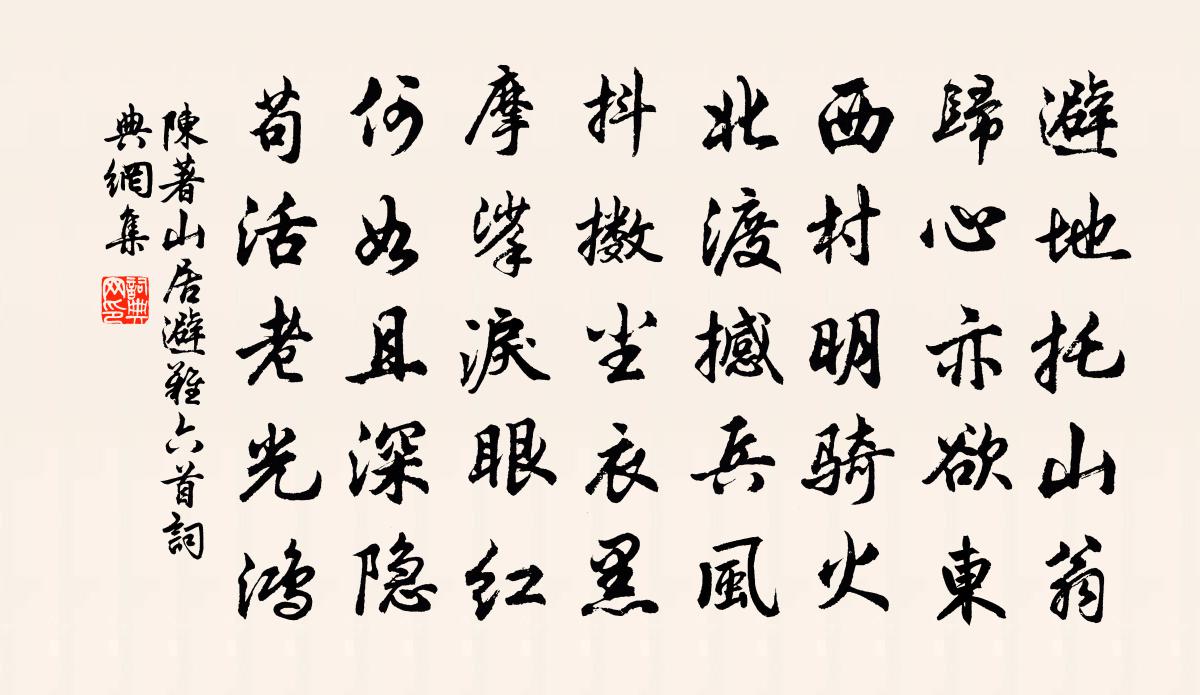 避地托山翁
歸心亦欲東
西村明騎火
北渡撼兵風
抖擻塵衣黑
摩挲淚眼紅
何如且深隐
苟活老光鸿
陳著山居避難六首詞
典網集
詞典
网印